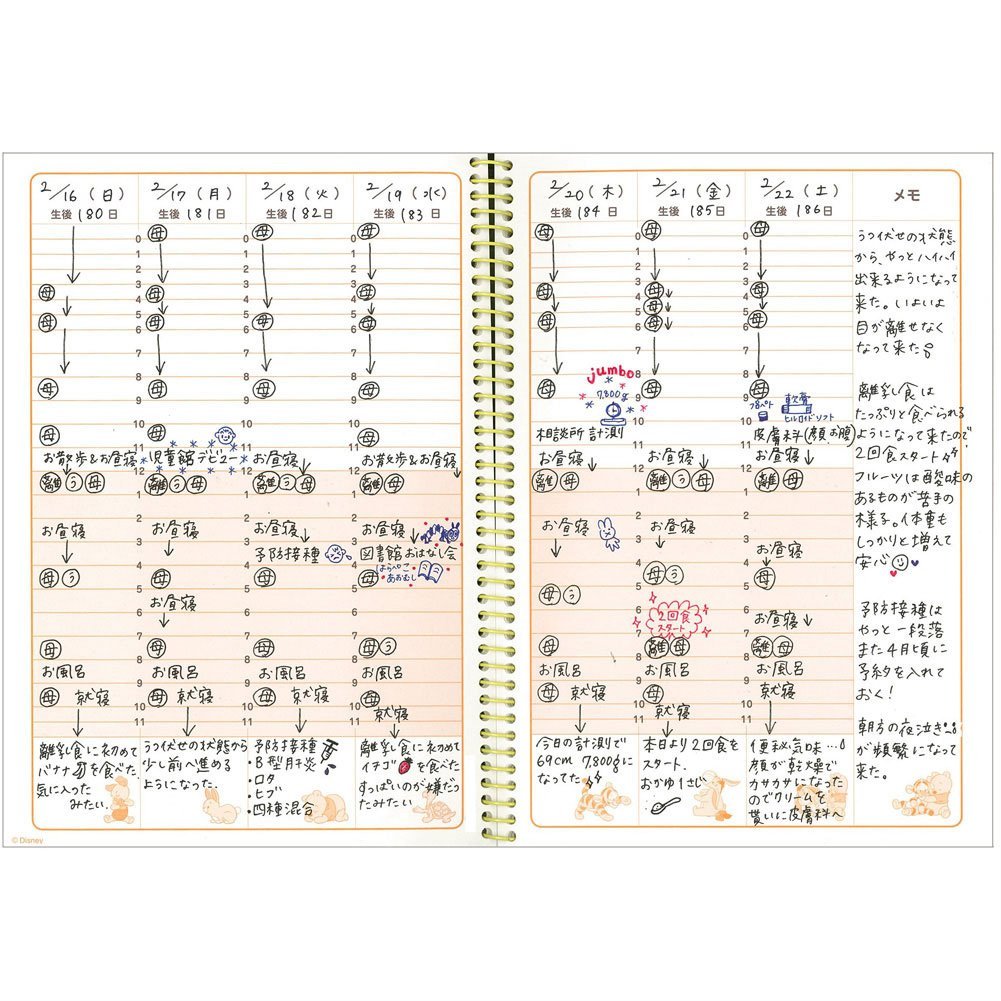 2/16（日）
生後180日
母
母
母
母
お散歩&お昼寝
離 う 母
お昼寝
母 う
母
お風呂
母 就寝
離乳食に初めて
バナナを食べた。
気に入った
みたい。
2/17（月）
生後181日
0
1
2
3
4
5
6
7
8
9
10
11
12
1
2
3
4
5
6
7
8
9
10
11
母
母
母
母
母
児童館デビュー
離 う 母
お昼寝
母
お昼寝
母
お風呂
母 就寝
うつ伏せの状態から
少し前へ進める
ようになった。
2/18（火）
生後182日
母
母
母
お昼寝
離 う 母
お昼寝
予防接種
母
母
お風呂
母 就寝
予防接種
・B型肝炎
・ロタ
・ヒブ
・四種混合
2/19（水）
生後183日
0
1
2
3
4
5
6
7
8
9
10
11
12
1
2
3
4
5
6
7
8
9
10
11
母
母
母
母
母
お散歩&お昼寝
離 母
お昼寝
図書館おはなし会
はらぺこ
あおむし
母
母 う
お風呂
母
就寝
離乳食に初めて
イチゴを食べた
すっぱいのが嫌だっ
たみたい。
© Disney
2/20（木）
生後184日
母
母
母
母
jumbo
7,800g
相談所 計測
お昼寝
離 母
お昼寝
母 う
母
お風呂
母 就寝
今日の計測で
69cm 7,800gに
なってた
2/21（金）
生後185日
0
1
2
3
4
5
6
7
8
9
10
11
12
1
2
3
4
5
6
7
8
9
10
11
母
母
母
母
母
お昼寝
離 う 母
お昼寝
母 う
2回食
スタート
離 母
お風呂
母
就寝
本日より2回食を
スタート。
おかゆ1さじ
2/22（土）
生後186日
0
1
2
3
4
5
6
7
8
9
10
11
12
1
2
3
4
5
6
7
8
9
10
11
母
母
母
母
軟膏
ヒルロイドソフト
皮膚科(顔お腹)
お昼寝
離 母
お昼寝
母
お昼寝
離 母
お風呂
母 就寝
便秘気味…
顔が乾燥で
カサカサになった
のでクリームを
貰いに皮膚科へ
メモ
うつ伏せの状態
から、やっとハイハイ
出来るようになって
来た。いよいよ
目が離せなく
なって来た
離乳食は
たっぷりと食べられる
ようになって来たので
2回食スタート
フルーツは酸味の
あるものが苦手の
様子。体重も
しっかりと増えて
安心
予防接種は
やっと一段落
また4月頃に
予約を入れて
おく!
朝方の夜泣き
が頻繁になって
来た。